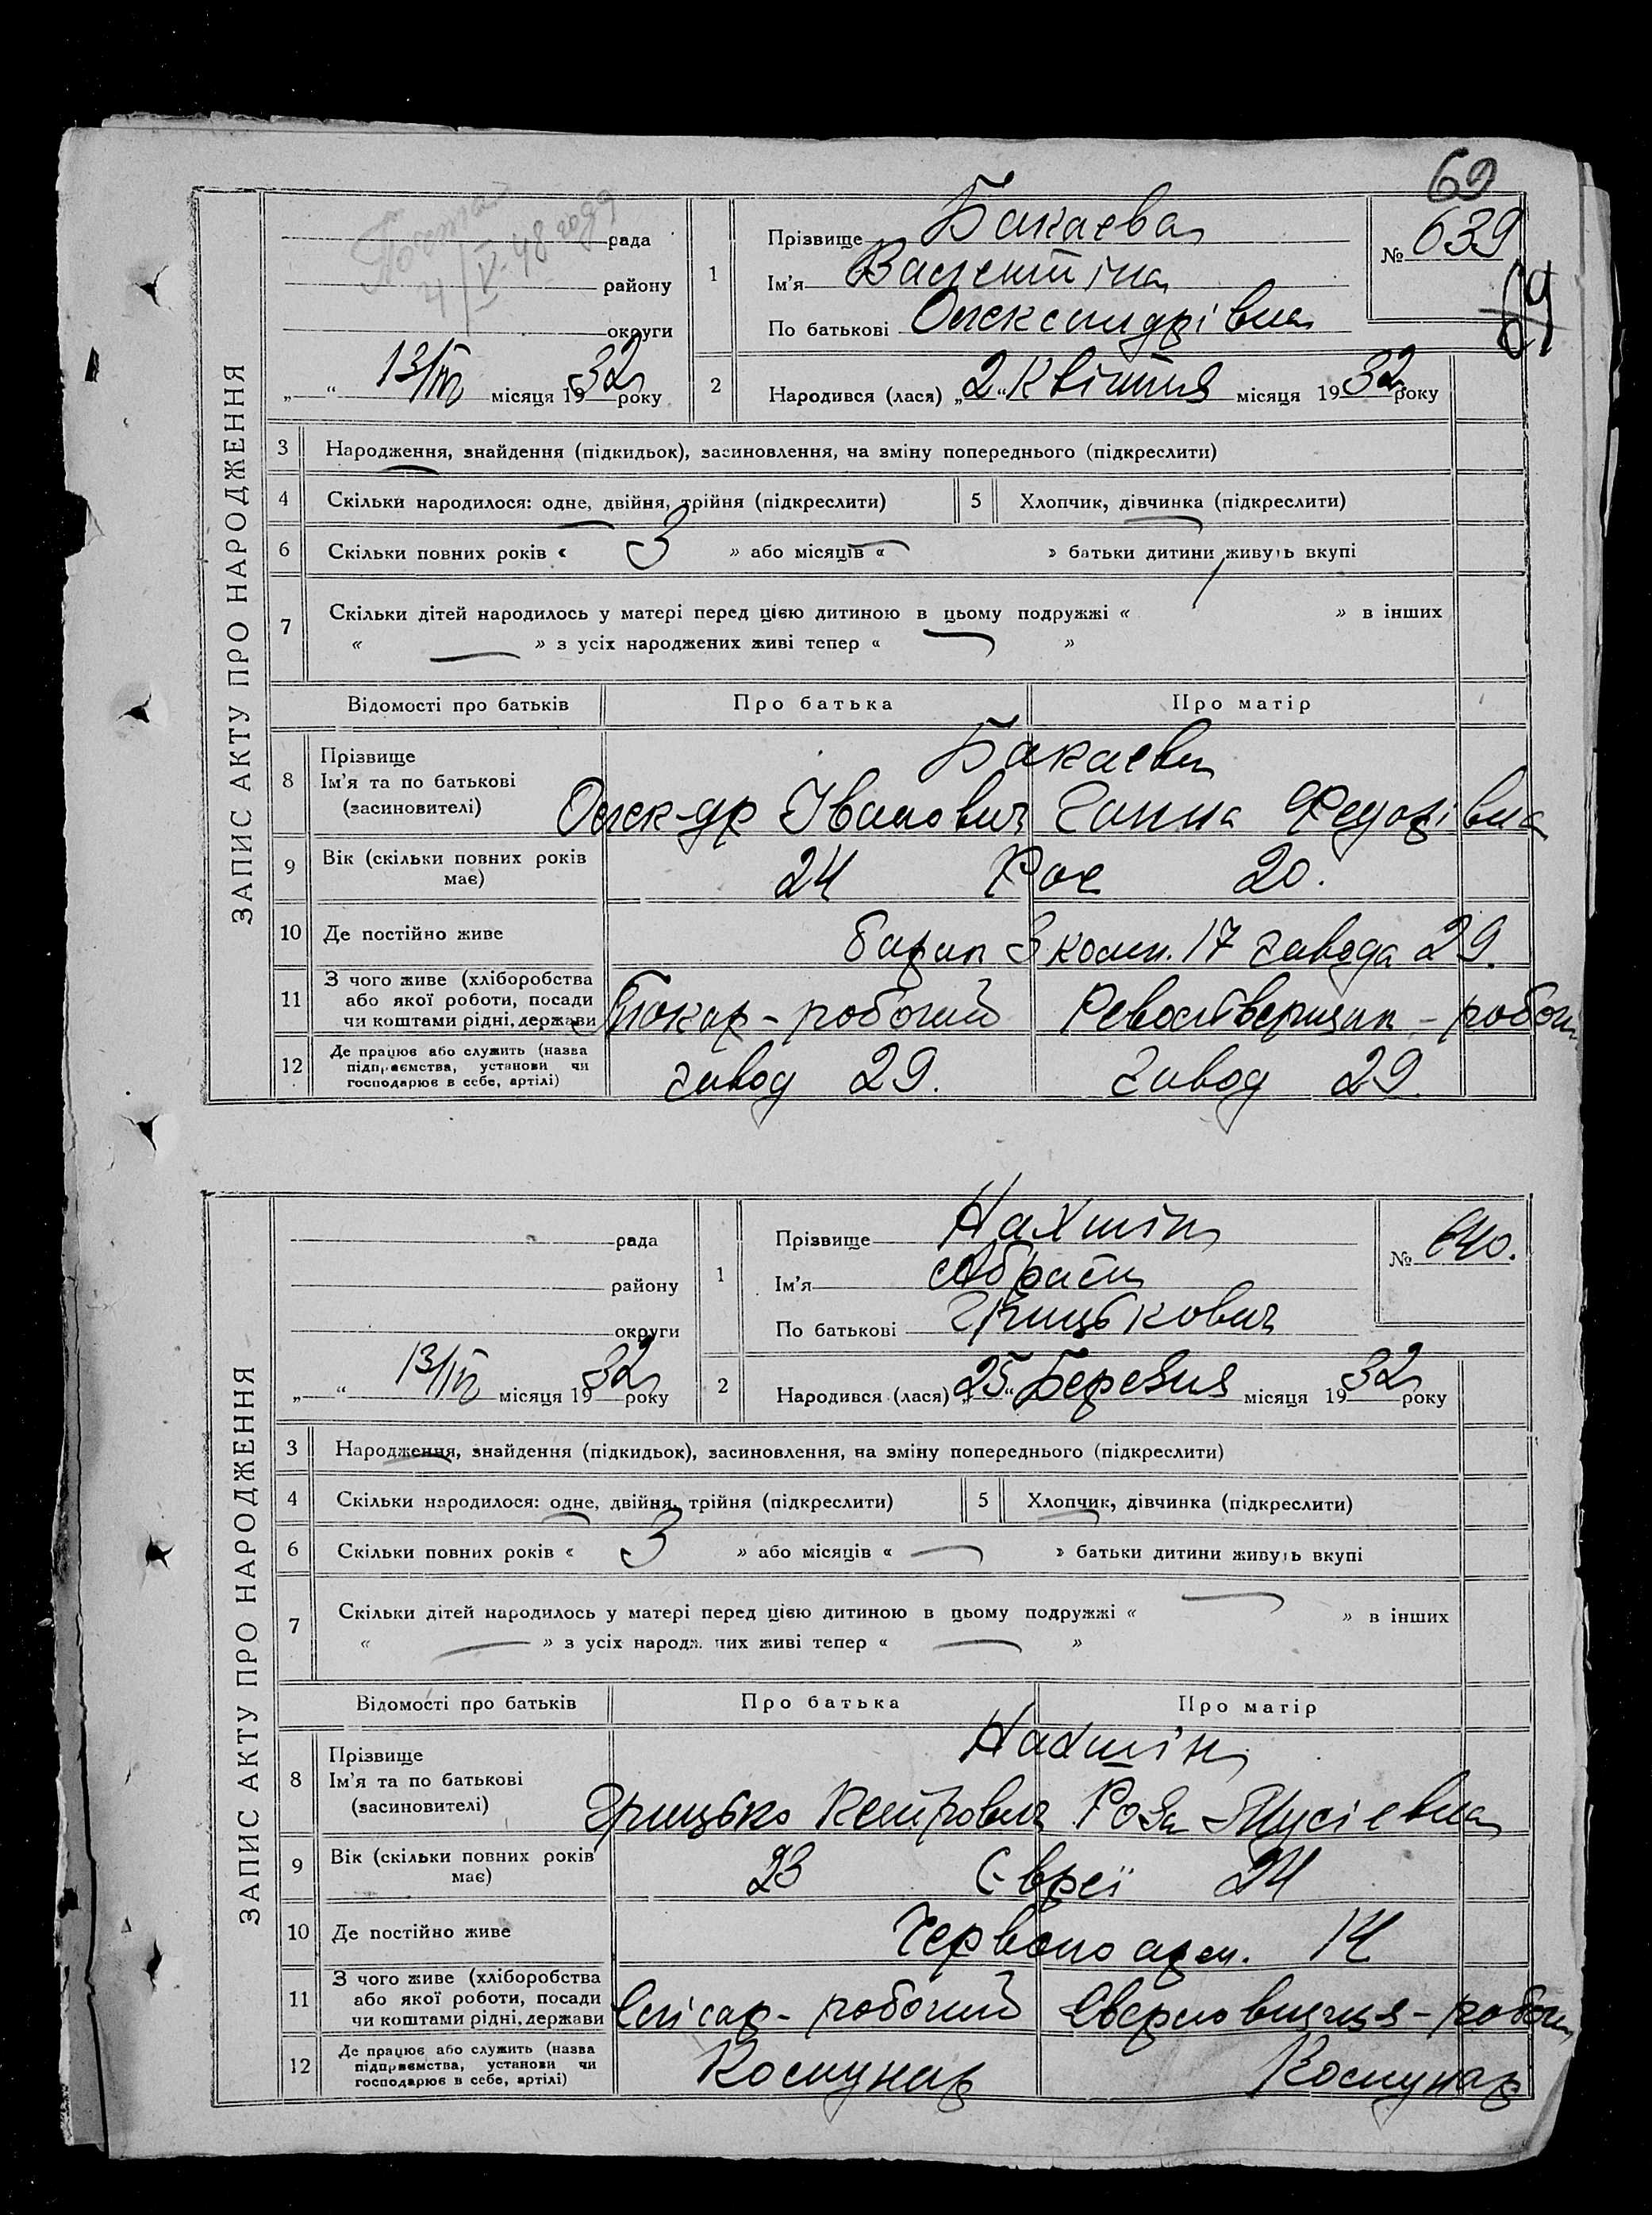 69
ЗАПИС АКТУ ПРО НАРОДЖЕННЯ
рада
району
округи
4/V-48 года
„ “ 13/IV місяця 1932 року
1
Прізвище Бакаева
Ім'я Валентіна
По батькові Олександрівна
№ 639
69
2
Народився (лася) „2“ Квітня місяця 1932 року
3 Народження, знайдення (підкидьок), засиновлення, на зміну попереднього (підкреслити)
4 Скільки народилося: одне, двійня, трійня (підкреслити) 5 Хлопчик, дівчинка (підкреслити)
6 Скільки повних років « 3 » або місяців « — » батьки дитини живуть вкупі
7 Скільки дітей народилось у матері перед цією дитиною в цьому подружжі « 1 » в інших
« — » з усіх народжених живі тепер « — »
Відомості про батьків Про батька Про матір
8 Прізвище
Ім'я та по батькові
(засиновителі)
Бакаеви
Олек-др Іванович Ганна Федорівна
9 Вік (скільки повних років має) 24 Рос 20.
10 Де постійно живе барак 3 комн. 17 завода 29.
11 З чого живе (хліборобства
або якої роботи, посади
чи коштами рідні, держави
Токар - робочий Револьверщик - робоч
12 Де працює або служить (назва
підприємства, установи чи
господарює в себе, артілі)
завод 29. завод 29
ЗАПИС АКТУ ПРО НАРОДЖЕННЯ
рада
району
округи
„ “ 13/IV місяця 1932 року
1
Прізвище Нахтін
Ім'я Абрам
По батькові Грицькович
№ 640.
2
Народився (лася) „25“ Березня місяця 1932 року
3 Народження, знайдення (підкидьок), засиновлення, на зміну попереднього (підкреслити)
4 Скільки народилося: одне, двійня, трійня (підкреслити) 5 Хлопчик, дівчинка (підкреслити)
6 Скільки повних років « 3 » або місяців « — » батьки дитини живуть вкупі
7 Скільки дітей народилось у матері перед цією дитиною в цьому подружжі « — » в інших
« — » з усіх народжених живі тепер « — »
Відомості про батьків Про батька Про матір
8 Прізвище
Ім'я та по батькові
(засиновителі)
Нахтін
Грицько Роза Мусіевна
9 Вік (скільки повних років має) 23 Євреї 24
10 Де постійно живе Червоно арм. 14
11 З чого живе (хліборобства
або якої роботи, посади
чи коштами рідні, держави
Слісар - робочий Сверловщиця - робоч
12 Де працює або служить (назва
підприємства, установи чи
господарює в себе, артілі)
Комунар Комунар